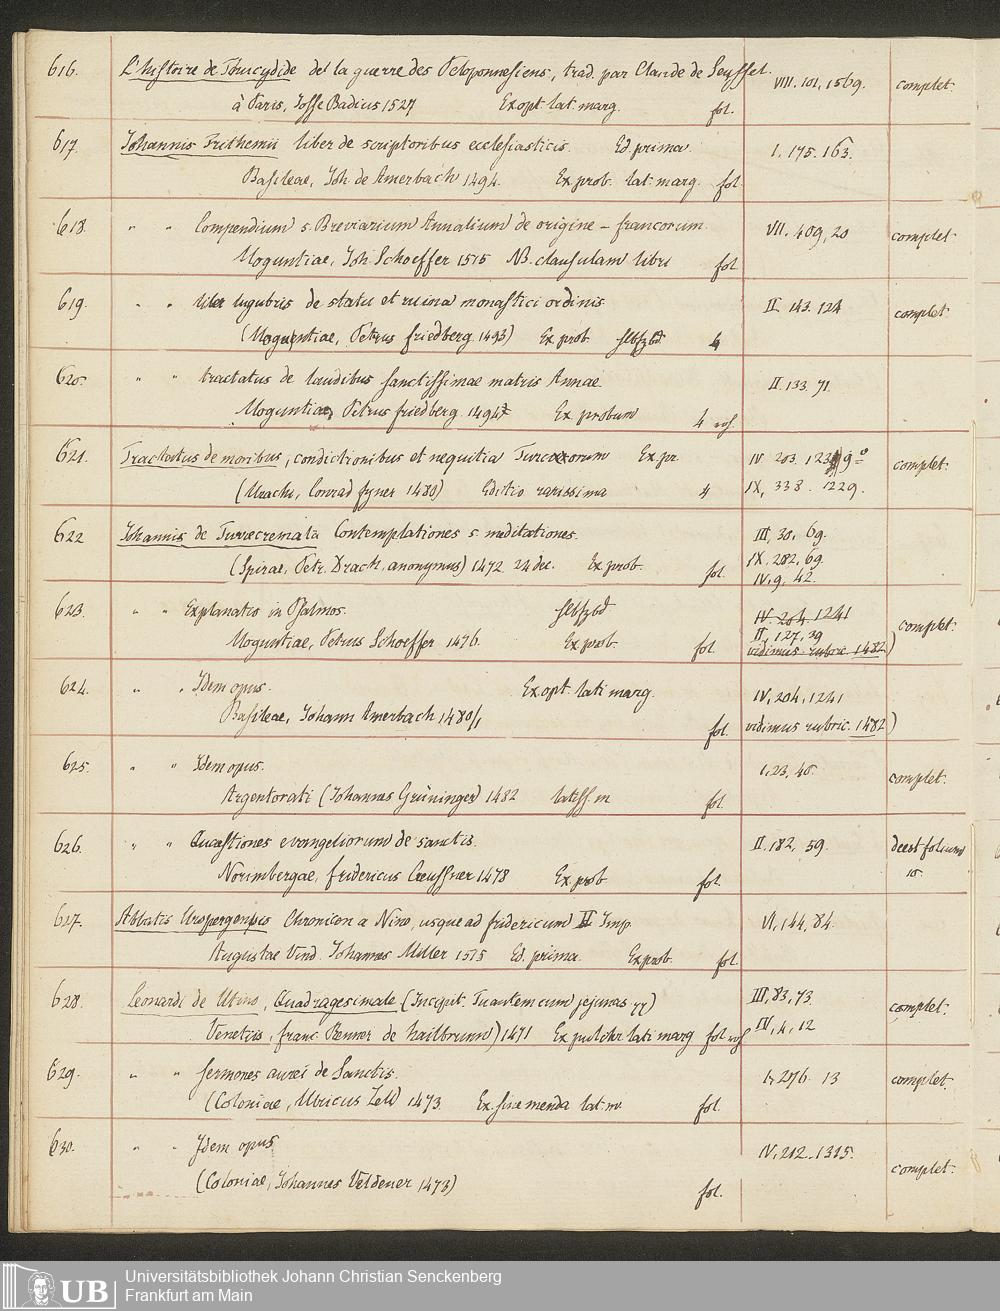 616. L'histoire de Thucydide de la guerre des Peloponnesiens, trad. par Claude de Seyssel. VIII. 101, 1569. complet.
à Paris, Josse Badius 1527 Ex opt. lat. marg. fol.
617. Johannis Trithemii liber de scriptoribus ecclesiasticis. Ed. prima. I. 175. 163.
Basileae, Joh. de Amerbach 1494. Ex prob. lat. marg. fol.
618. " " Compendium s. Breviarium Annalium de origine – francorum. VII. 409, 20 complet.
Moguntiae, Joh. Schoeffer 1515 NB. clausulam libri fol.
619. " " liber lugubris de statu et ruina monastici ordinis II. 143. 124 complet.
(Moguntiae, Petrus friedberg 1493) Ex prob 4
620. " " tractatus de laudibus sanctissimae matris Annae II. 133. 71.
Moguntiae, Petrus friedberg. 1494 Ex probum 4
621. Tractatus de moribus, condictionibus et nequitia Turcorum Ex pr. IV. 203. complet.
(Urachi, Conrad fyner 1480) Editio rarissima 4 IX, 338. 1229.
622 Johannis de Turrecremata Contemplationes s. meditationes. III, 30, 69.
(Spirae, Petr. Drach, anonymus) 1472 24 dec. Ex prob. fol. IX. 282, 69.
IV, 9, 42.
623. " " Explanatio in Psalmos. IV. 204. 1241 complet.
Moguntiae, Petrus Schoeffer 1476. Ex prob. fol. II, 127, 39
vidimus rubric. 1482)
624. " " Idem opus. Ex opt. lati marg. IV, 204, 1241
Basileae, Johann Amerbach 1480/1 fol. vidimus rubric. 1482)
625. " " Idem opus. I, 23, 45. complet.
Argentorati (Johannes Grüninger) 1482 latiss. m fol.
626. " " Quaestiones evangeliorum de sanctis. II, 182, 59. deest folium
Norimbergae, fridericus Creussner 1478 Ex prob fol. 10.
627. Abbatis Urspergensis Chronicon a Nino, usque ad fridericum II Imp. VI, 144, 84.
Augustae Vind. Johannes Miller 1515 Ed. prima. Ex prob. fol.
628. Leonardi de Utino, Quadragesimale (Incipit Tu autem cum jejunas) III, 83, 73. complet.
Venetiis, franc. Renner de hailbrunn) 1471 Ex pulchr. lati marg fol IV, 4, 12
629. " " sermones aurei de Sanctis. I, 276. 13 complet.
(Coloniae, Ulricus Zell) 1473. Ex. sine menda lat. m. fol.
630. " " Idem opus. IV, 212. 1315. complet.
(Coloniae, Johannes Veldener 1473) fol.
UB Universitätsbibliothek Johann Christian Senckenberg
Frankfurt am Main